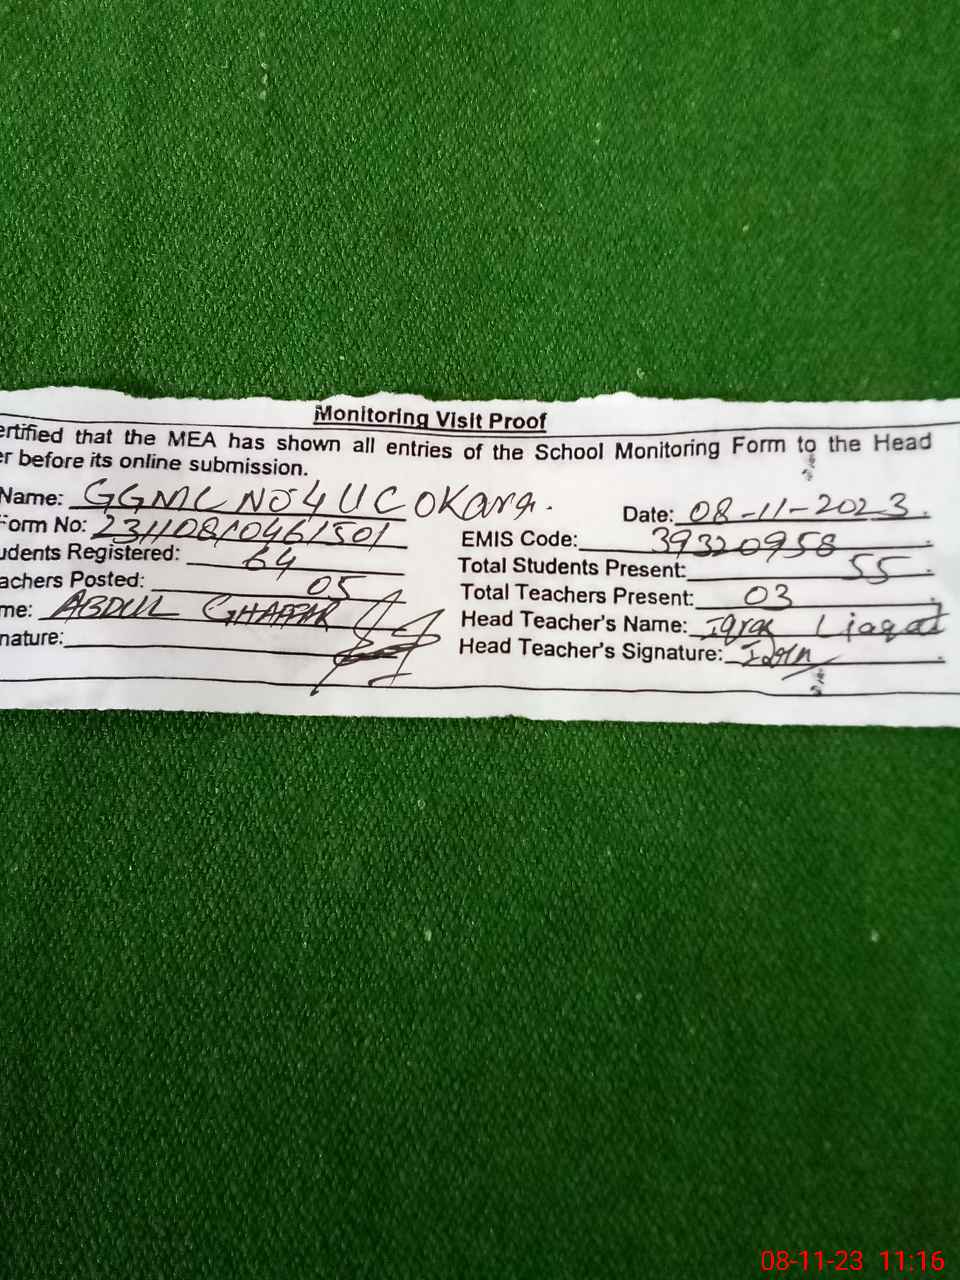 Monitoring Visit Proof
ertified that the MEA has shown all entries of the School Monitoring Form to the Head
er before its online submission.
Name: GGMC NO 4 UC OKara. Date: 08-11-2023.
Form No: EMIS Code: 39320958
udents Registered: 64 Total Students Present: 55
achers Posted: 05 Total Teachers Present: 03
me: ABDUL GHAFFAR Head Teacher's Name: Iqraa Liaqat
nature: Head Teacher's Signature:
08-11-23 11:16